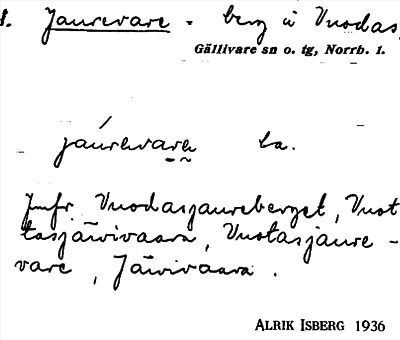 Jaurevare - berg å Vuodas
Gällivare sn o. tg, Norrb. l.
jáurɛvarɛ la.
Jmfr Vuodasjaureberget, Vuot
tasjärvivaara, Vuotasjaure -
vare, Järvivaara.
ALRIK ISBERG 1936